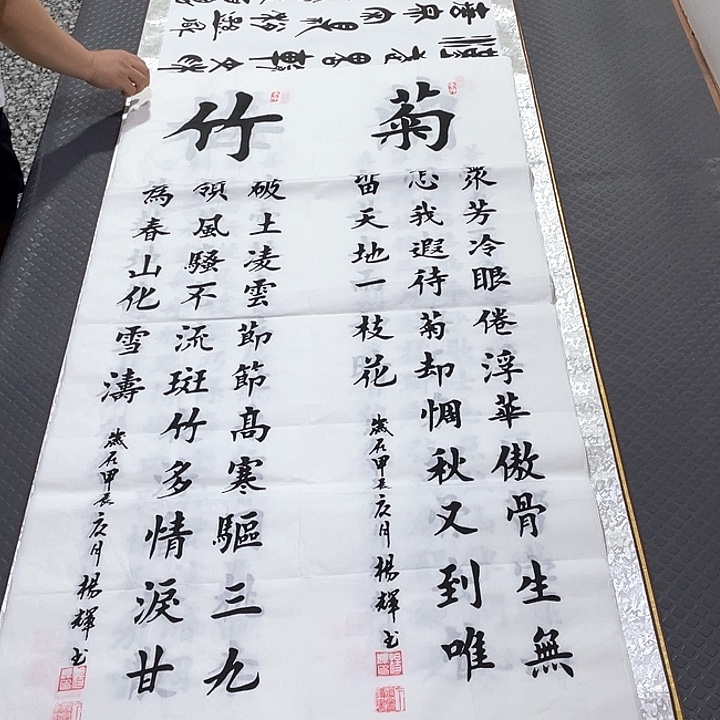 菊
衆芳冷眼倦浮華傲骨生無
忌我遐待菊却惆秋又到唯
留天地一枝花
歲在甲辰
月楊輝書
竹
破土凌雲節節高寒驅三九
領風騷不流斑竹多情淚甘
為春山化雪濤
歲在甲辰
月楊輝書